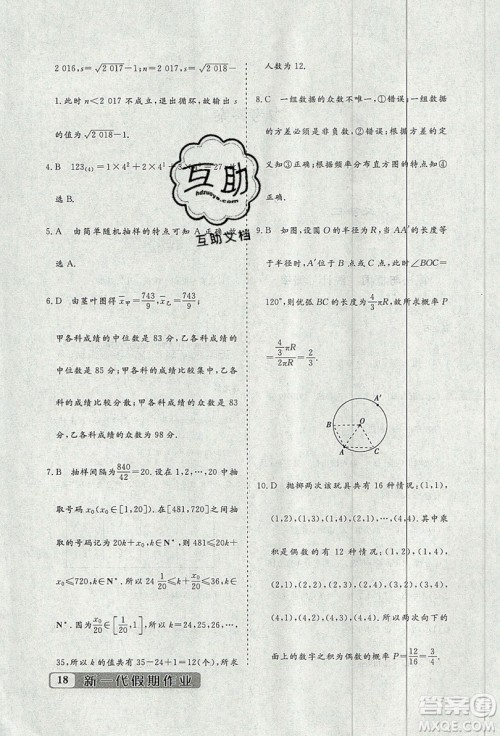 2 016,s=√2 017-1;n=2 017,s=√2 018-
1.此时 n<2 017 不成立,退出循环,故输出 s
的值为√2 018-1.
4.B 123(4)=1×4²+2×4¹+3×4⁰=27.
选 B.
5.A 由简单随机抽样的特点可知 A 正确.故
选 A.
6.D 由茎叶图得 x̄甲=743/9,x̄乙=743/9;
甲各科成绩的中位数是 83 分,乙各科成绩的
中位数是 85 分;甲各科成绩比较集中,乙各科
成绩比较分散;甲各科成绩的众数是 83 分,乙
各科成绩的众数是 98 分.
7.B 抽样间隔为840/42=20.设在 1,2,…,20 中抽
取号码 x₀(x₀∈[1,20]),在[481,720]之间抽
取的号码记为 20k+x₀,则 481≤20k+x₀
≤720,k∈N*.所以 24 1/20≤k+x₀/20≤36.k∈
N*.因为x₀/20∈[1/20,1],所以 k=24,25,26,…,
35,所以 k 的值共有 35-24+1=12(个),即所求
18 新一代假期作业
人数为 12.
8.C 一组数据的众数不唯一,①错误;一组数据
的方差必须是非负数,②错误;根据方差的定
义知③正确;根据频率分布直方图的特点知④
正确.
9.B 如图,当圆 O 的半径为 R.当 AA'的长度等
于半径时,A'位于 B 点或 C 点,此时∠BOC=
120°,则优弧BC的长度为4/3πR.故所求概率 P
=4/3πR/2πR=2/3.
A'
B
O
A
C
10.D 抛掷两次该玩具共有 16 种情况:(1,1),
(1,2),(1,3),(1,4),(2,1),…,(4,4).其中乘
积是偶数的有 12 种情况:(1,2),(1,4),
(2,1),(2,2),(2,3),(2,4),(3,2),(3,4),
(4,1),(4,2),(4,3),(4,4).所以两次向下的
面上的数字之积为偶数的概率 P=12/16=3/4.
互助
hdzuoye.com
互助文档
作业帮
www.mszuoye.com